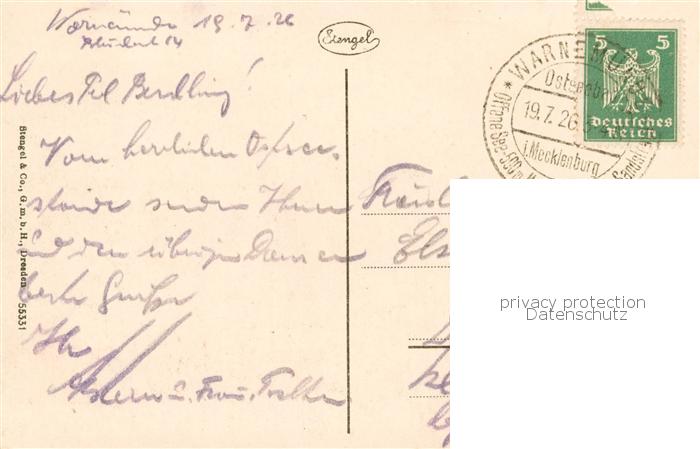 Warnemünde 19.7.26
Stengel
Liebes Frl. Bendling!
Vom herrlichen Ostsee-
strande senden Ihnen
und den übrigen Damen
beste Grüße
Ihr
u. Frau
Fräul
Els
Stengel & Co., G.m.b.H., Dresden 55331
WARNEMÜ
Ostseeba
19.7.26
i. Mecklenburg
Offene See 500 m
5 5
Deutsches
Reich
privacy protection
Datenschutz